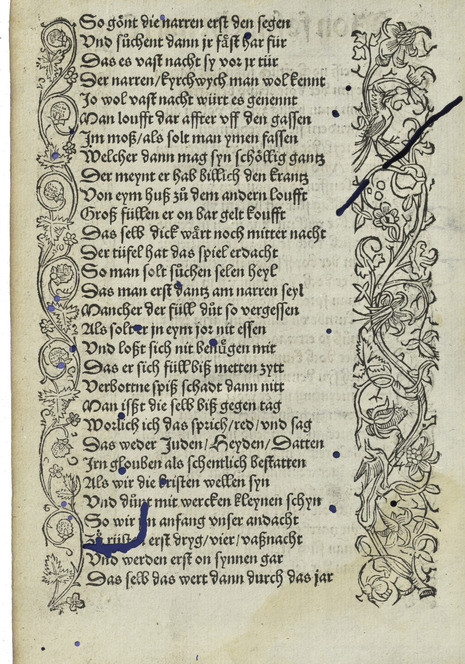 So gönt die narren erst den segen
Vnd süchent dann jr fäst har für
Das es vast nacht sy vor jr tür
Der narren/kyrchwych man wol kennt
Jo wol vast nacht würt es genennt
Man loufft dar affter vff den gassen
Jm moß/als solt man ymen fassen
Welcher dann mag syn schöllig gantz
Der meynt er hab billich den krantz
Von eym huß zů dem andern loufft
Groß füllen er on bar gelt koufft
Das selb dick wärt noch mitter nacht
Der tüfel hat das spiel erdacht
So man solt süchen selen heyl
Das man erst dantz am narren seyl
Mancher der füll düt so vergessen
Als solt er jn eym jor nit essen
Vnd loßt sich nit benügen mit
Das er sich füll biß metten zytt
Verbottne spiß schadt dann nitt
Man ißt die selb biß gegen tag
Worlich ich das sprich/red/vnd sag
Das weder Juden/Heyden/Datten
Jrn glouben als schentlich bestatten
Als wir die kristen wellen syn
Vnd mit wercken kleynen schyn
So wir anfang vnser andacht
erst dryg/vier/vaßnacht
Vnd werden erst on synnen gar
Das selb das wert dann durch das jar